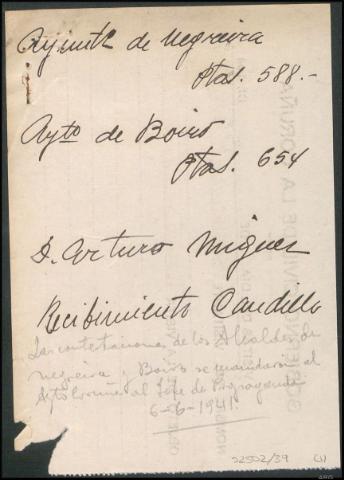 Ayunt. de Negreira
Ptas. 588.-
Ayto de Boiro
Ptas. 654
D. Arturo Miguez
Recibimiento Caudillo
Las contestaciones de los Alcaldes de
Negreira y Boiro se mandaron al
Ayto Coruña al Jefe de Propaganda
6-6-1941.
32502/39 (1)